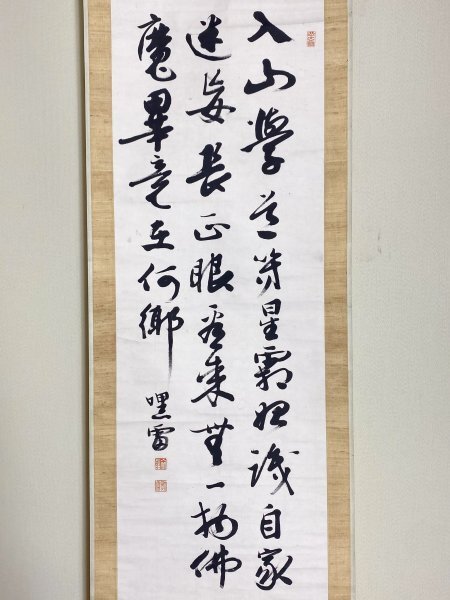 入山學道幾星霜始識自家
迷妄長正眼看來無一物佛
魔畢竟在何鄉
嘿雷